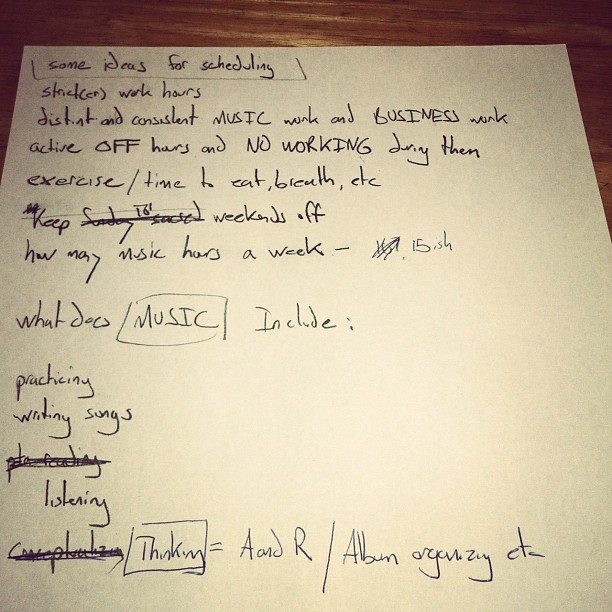 some ideas for scheduling
strict(er) work hours
distint and consistent MUSIC work and BUSINESS work
active OFF hours and NO WORKING during them
exercise / time to eat, breath, etc
*Keep Sunday weekends off
how many music hours a week - 15ish
what does MUSIC Include:
practicing
writing songs
listening
conceptualizing / Thinking = A and R / Album organizing etc